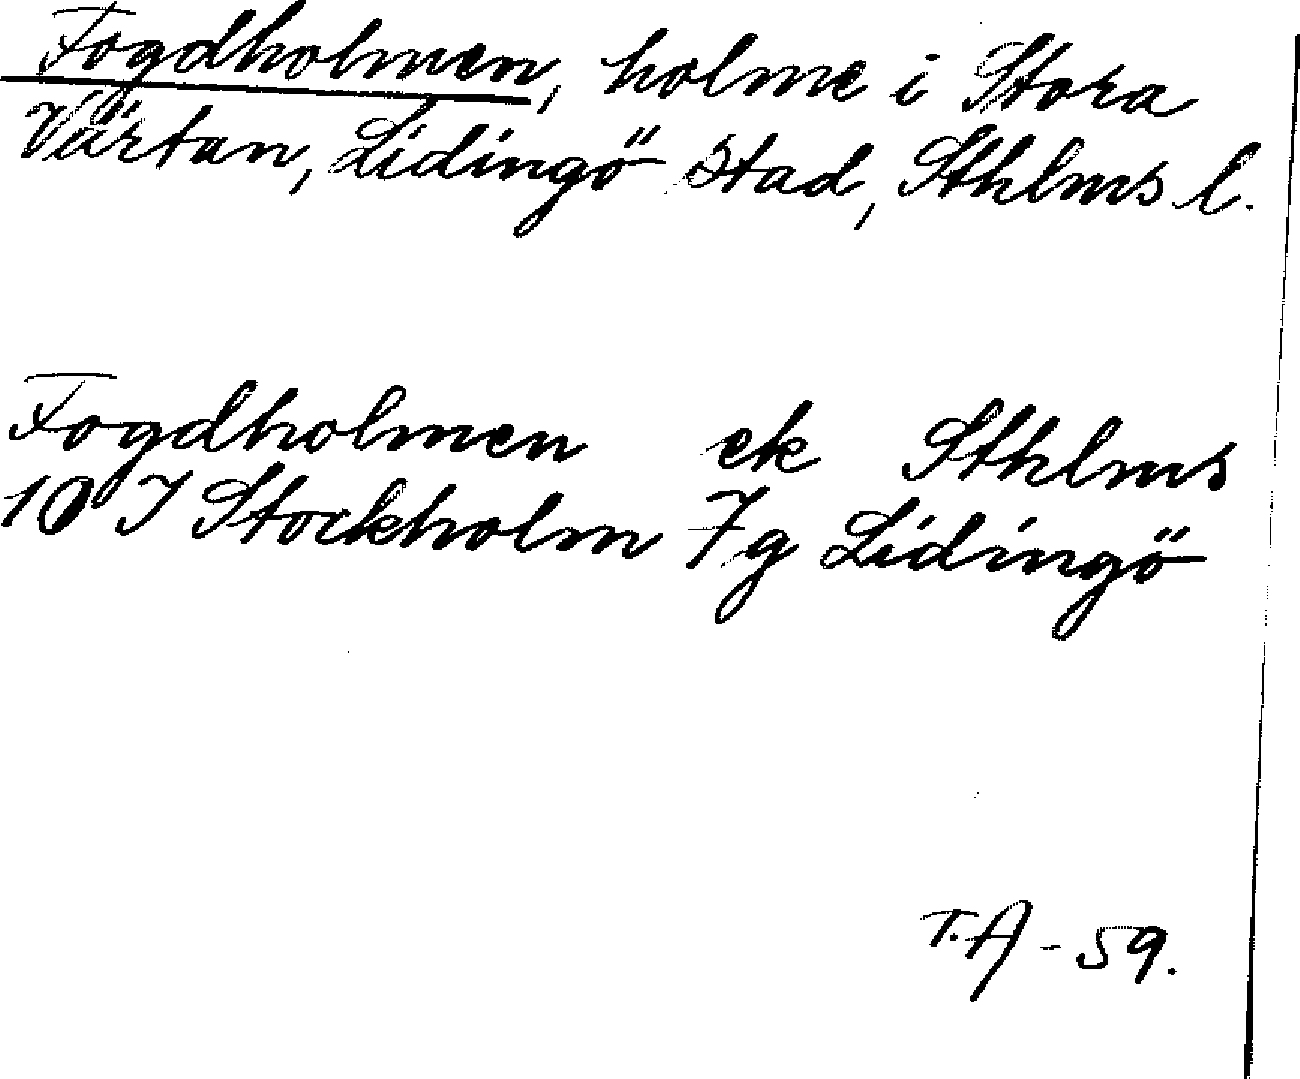 Fogdholmen, holme i Stora
Värtan, Lidingö stad, Sthlms l.
Fogdholmen ek Sthlms
10 I Stockholm 7g Lidingö
T.A - 59.